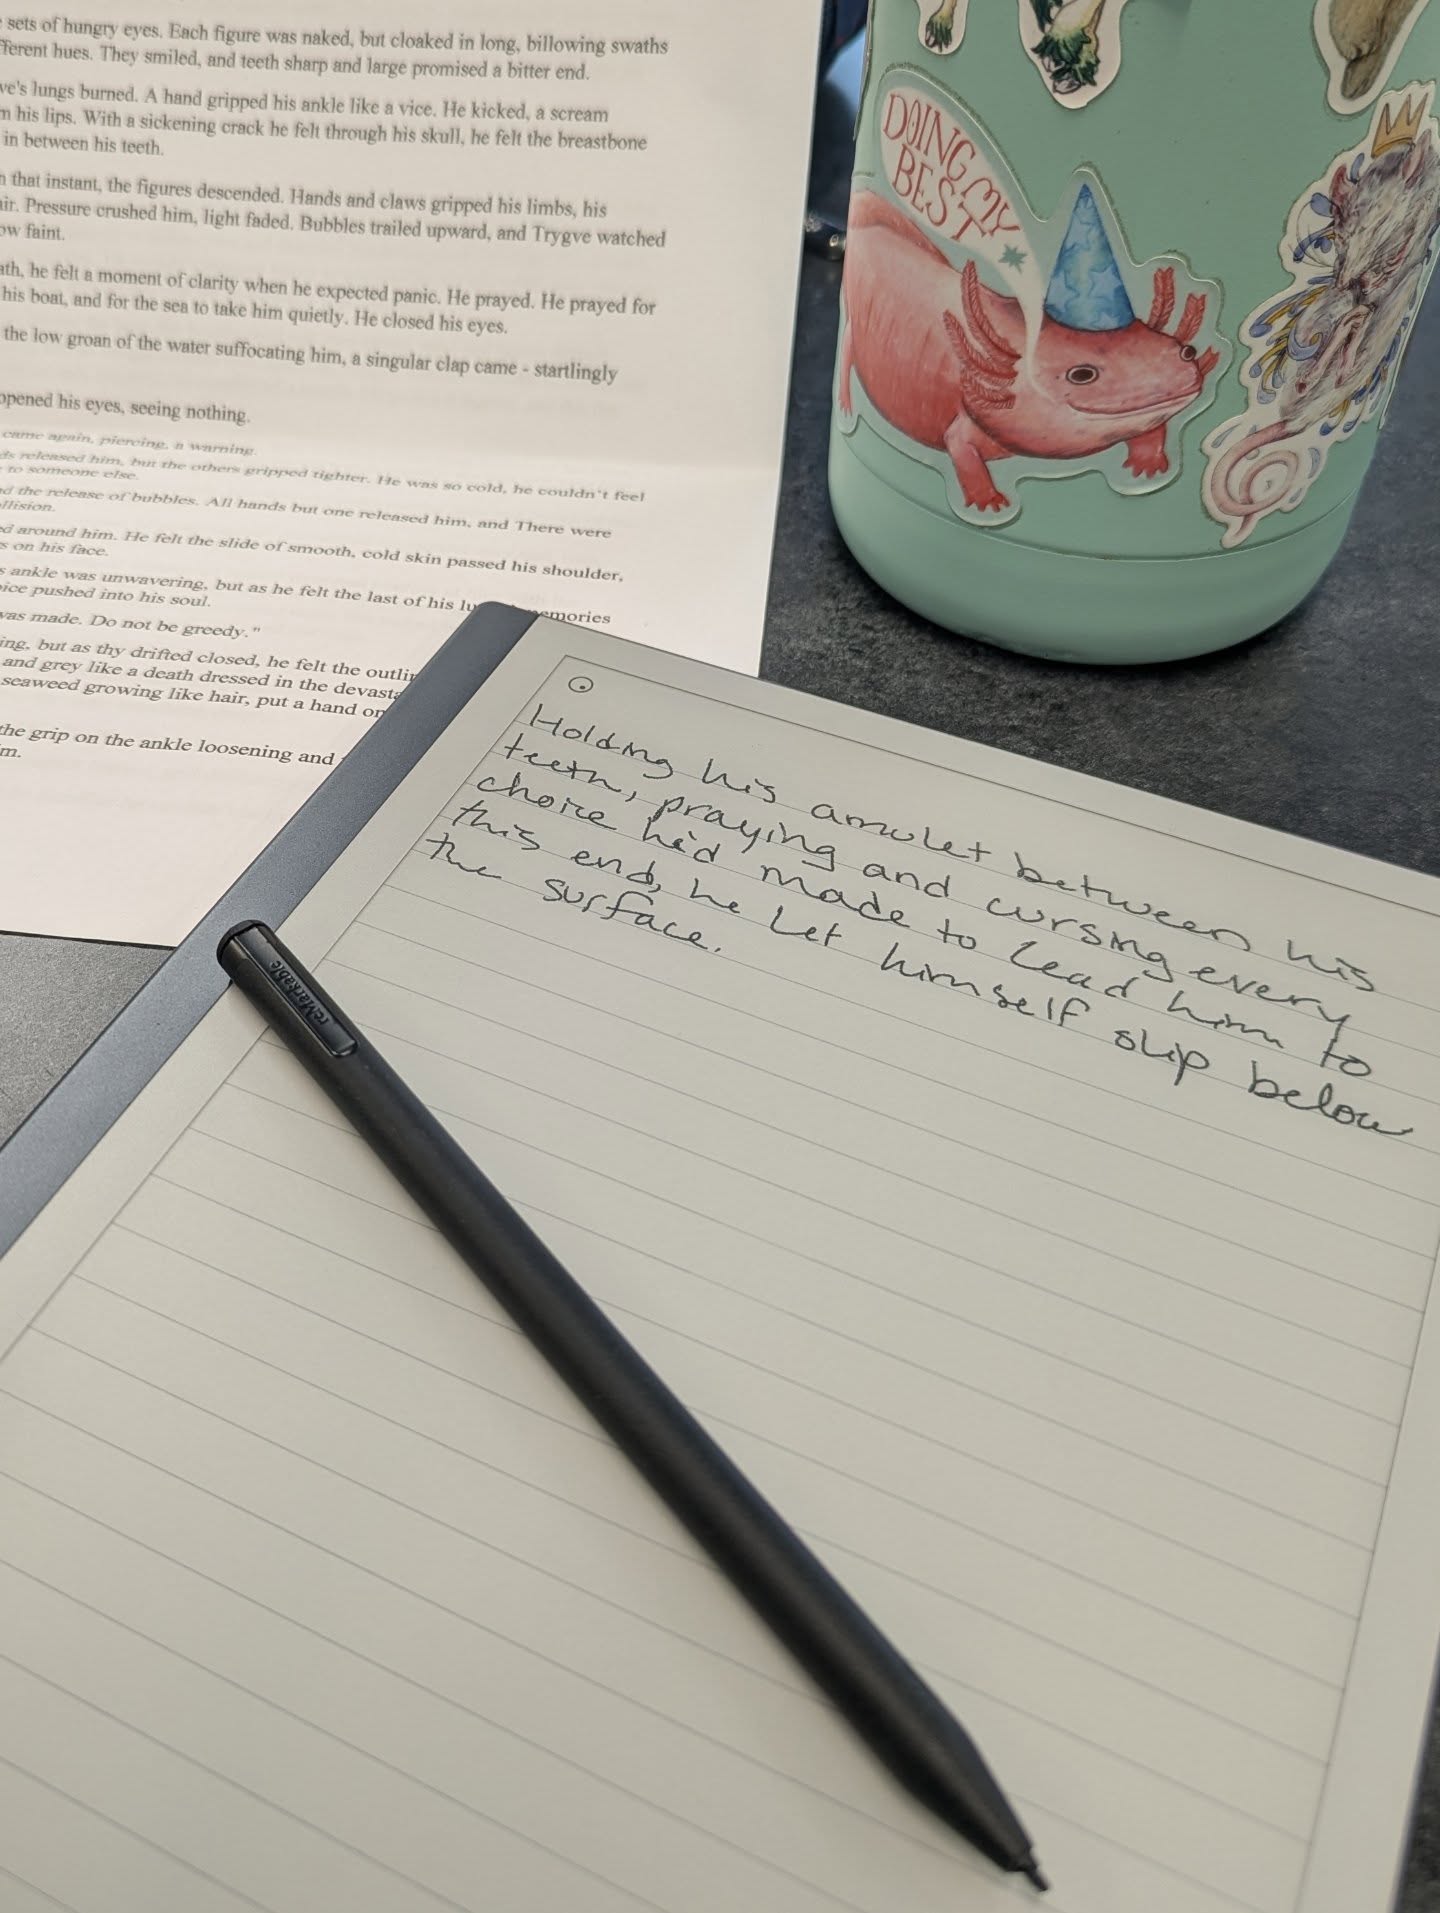 sets of hungry eyes. Each figure was naked, but cloaked in long, billowing swaths
fferent hues. They smiled, and teeth sharp and large promised a bitter end.
ve's lungs burned. A hand gripped his ankle like a vice. He kicked, a scream
m his lips. With a sickening crack he felt through his skull, he felt the breastbone
in between his teeth.
n that instant, the figures descended. Hands and claws gripped his limbs, his
air. Pressure crushed him, light faded. Bubbles trailed upward, and Trygve watched
ow faint.
ath, he felt a moment of clarity when he expected panic. He prayed. He prayed for
his boat, and for the sea to take him quietly. He closed his eyes.
the low groan of the water suffocating him, a singular clap came - startlingly
opened his eyes, seeing nothing.
came again, piercing, a warning.
ds released him, but the others gripped tighter. He was so cold, he couldn't feel
to someone else.
nd the release of bubbles. All hands but one released him, and There were
ollision.
ed around him. He felt the slide of smooth, cold skin passed his shoulder,
s on his face.
s ankle was unwavering, but as he felt the last of his lu emories
oice pushed into his soul.
was made. Do not be greedy."
ing, but as thy drifted closed, he felt the outlin
and grey like a death dressed in the devasta
seaweed growing like hair, put a hand on
the grip on the ankle loosening and
m.
DOING MY
BEST
Holding his amulet between his
teeth, praying and cursing every
choice he'd made to lead him to
this end, he let himself slip below
the surface.
reMarkable